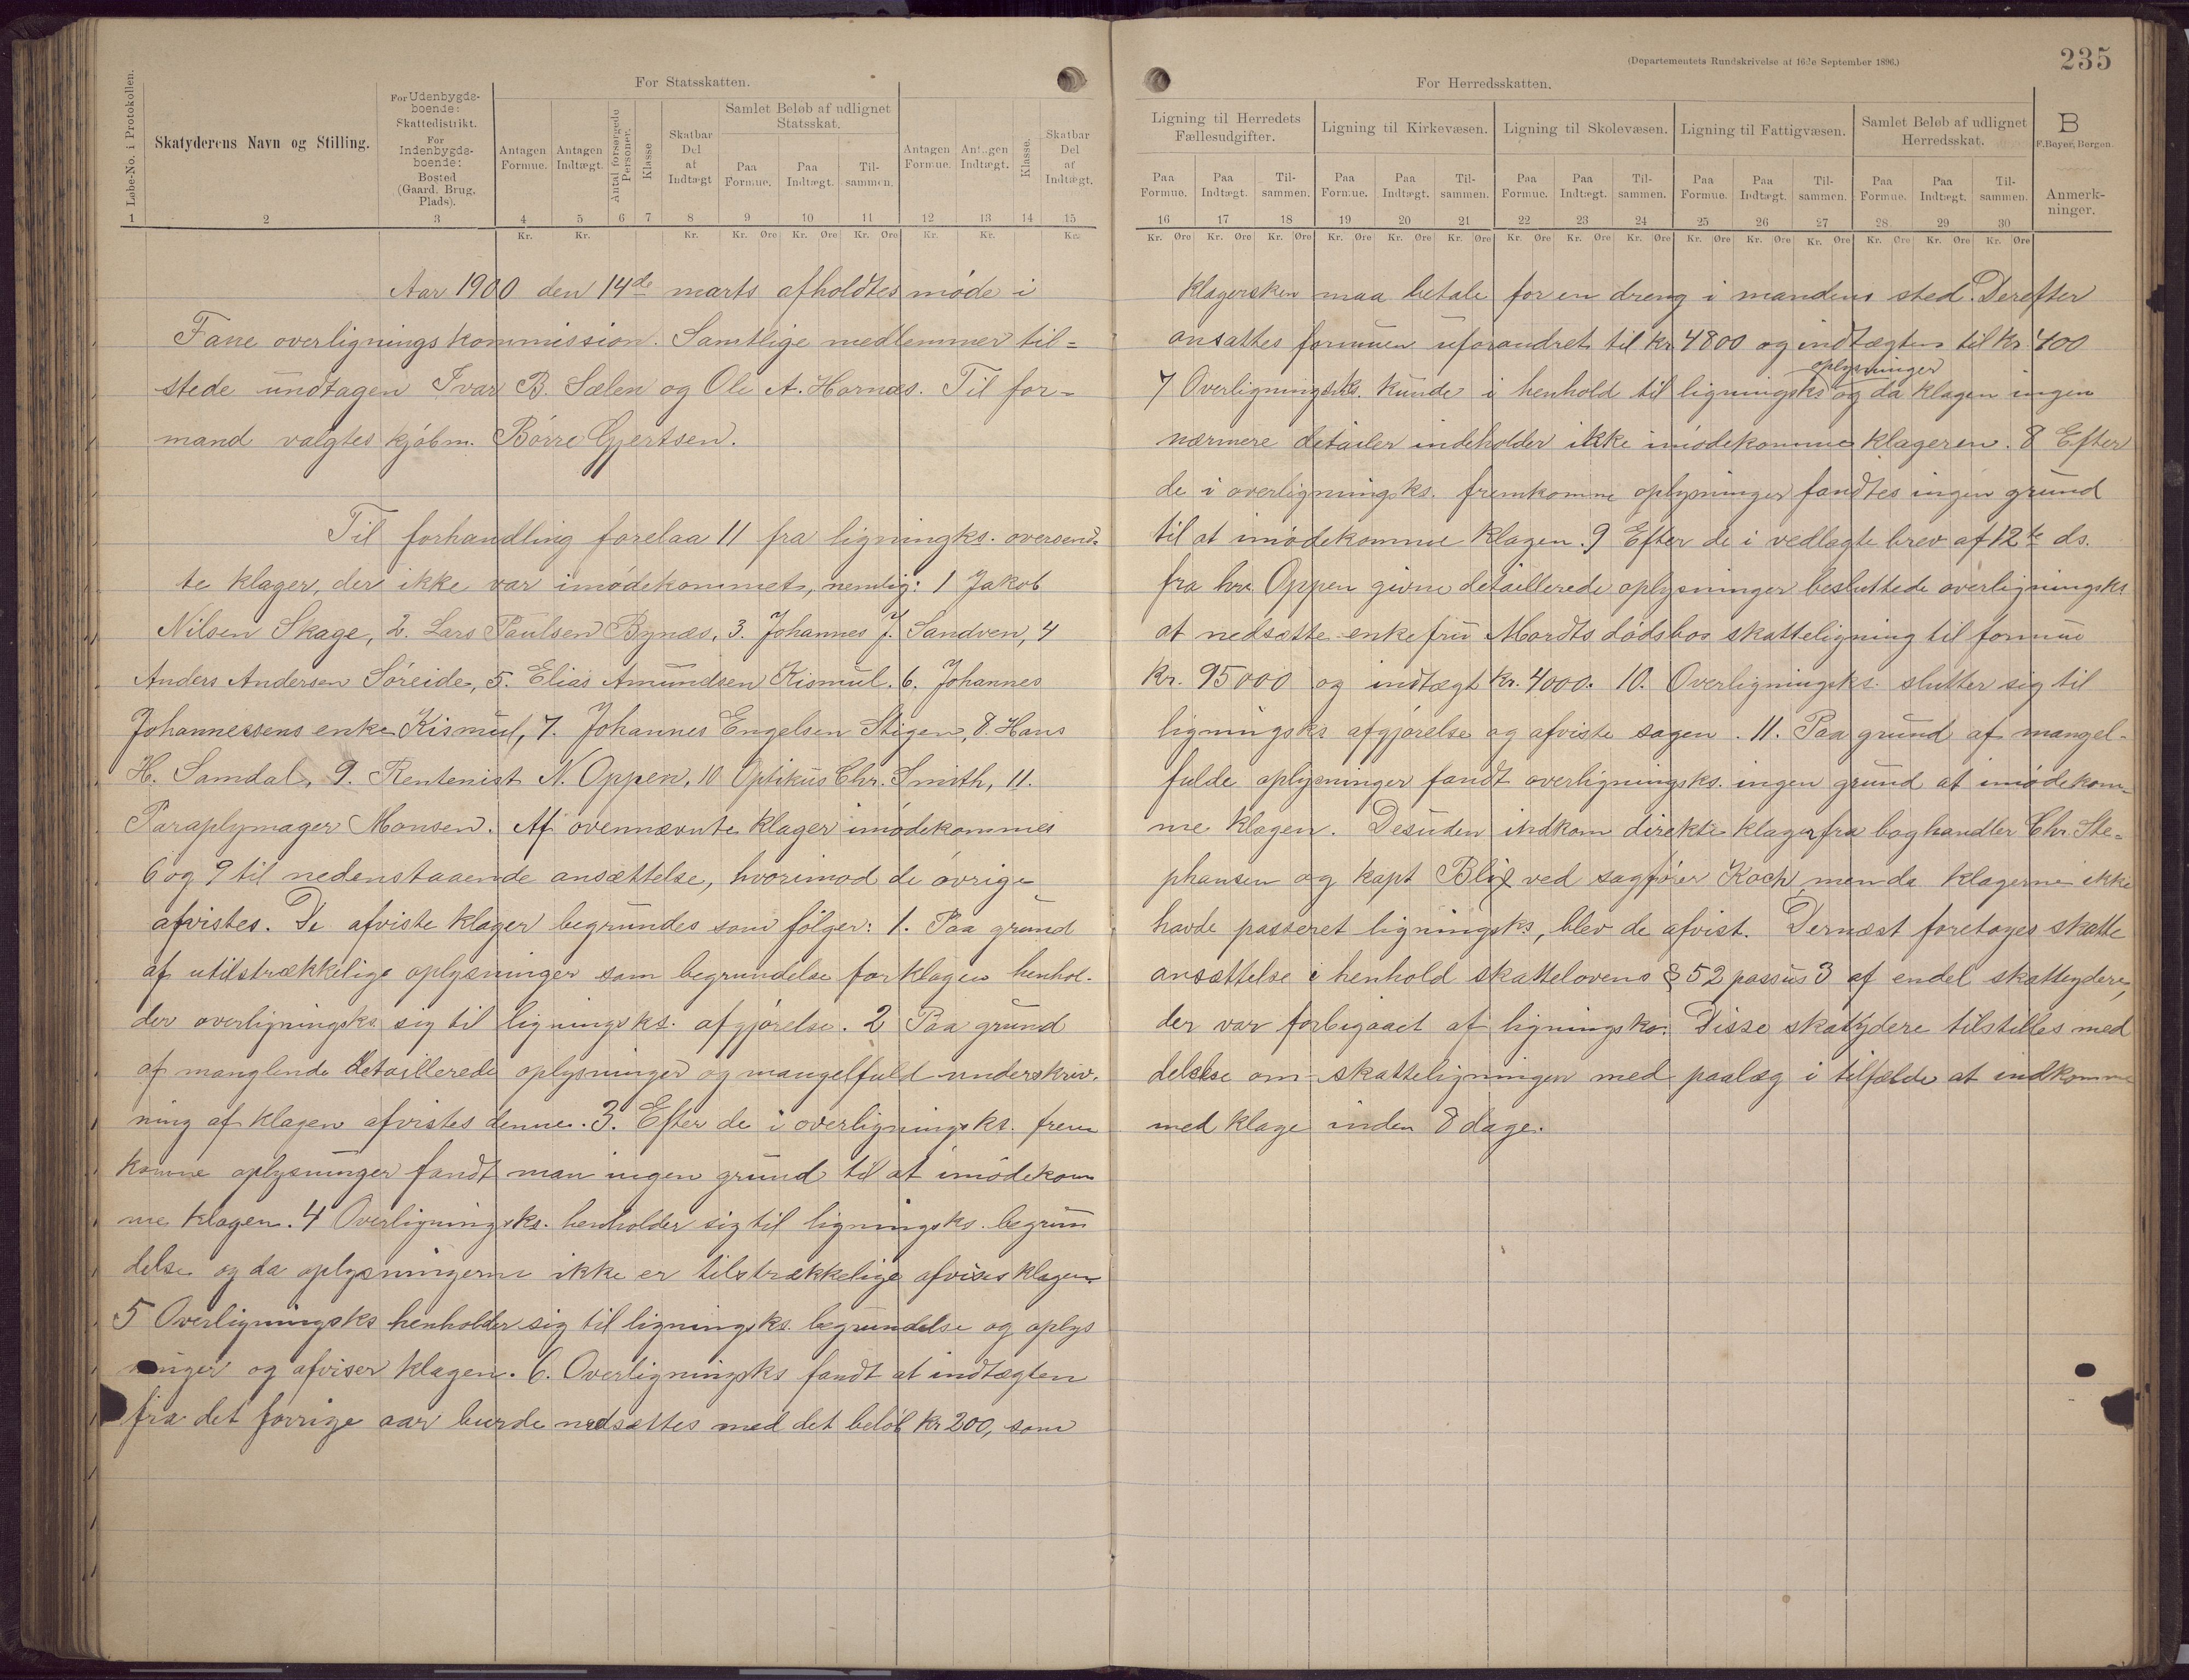 235
(Departementets Rundskrivelse af 16de September 1896.)
For Statsskatten.
For Herredsskatten.
Løbe-No. i Protokollen.
Skatyderens Navn og Stilling.
For Udenbygds-
boende:
Skattedistrikt.
For
Indenbygds-
boende:
Bosted
(Gaard, Brug,
Plads).
Antagen
Formue.
Antagen
Indtægt.
Antal forsørgede
Personer.
Klasse
Skatbar
Del
af
Indtægt
Samlet Beløb af udlignet
Statsskat.
Paa
Formue.
Paa
Indtægt.
Til-
sammen.
Antagen
Formue.
Antagen
Indtægt.
Klasse.
Skatbar
Del
af
Indtægt.
1 2 3 4 5 6 7 8 9 10 11 12 13 14 15
Kr. Kr. Kr. Kr. Øre Kr. Øre Kr. Øre Kr. Kr. Kr.
Ligning til Herredets
Fællesudgifter.
Ligning til Kirkevæsen.
Ligning til Skolevæsen.
Ligning til Fattigvæsen.
Samlet Beløb af udlignet
Herredsskat.
B
F. Beyer, Bergen.
Paa Formue. Paa Indtægt. Til- sammen. Paa Formue. Paa Indtægt. Til- sammen. Paa Formue. Paa Indtægt. Til- sammen. Paa Formue. Paa Indtægt. Til- sammen. Paa Formue. Paa Indtægt. Til- sammen.
Anmerk-
ninger.
16 17 18 19 20 21 22 23 24 25 26 27 28 29 30
Kr. Øre Kr. Øre Kr. Øre Kr. Øre Kr. Øre Kr. Øre Kr. Øre Kr. Øre Kr. Øre Kr. Øre Kr. Øre Kr. Øre Kr. Øre Kr. Øre Kr. Øre
Aar 1900 den 14de marts afholdtes møde i
Fane overligningskommission. Samtlige medlemmer til=
stede undtagen Ivar B. Sælen og Ole A. Hornæs. Til for=
mand valgtes kjøbm. Børre Gjertsen.
Til forhandling forelaa 11 fra ligningks. oversend-
te klager, der ikke var imødekommet, nemlig: 1 Jakob
Nilsen Skage, 2. Lars Paulsen Bynæs, 3. Johannes J. Sandven, 4
Anders Andersen Søreide, 5. Elias Amundsen Kismul. 6. Johannes
Johannessens enke Kismul, 7. Johannes Engelsen Stigen, 8. Hans
H. Samdal, 9. Rentenist N. Oppen, 10 Optikus Chr. Smith, 11.
Paraplymager Monsen. Af ovennævnte klager imødekommes
6 og 9 til nedenstaaende ansættelse, hvorimod de øvrige
afvistes. De afviste klager begrundes som følger: 1. Paa grund
af utilstrækkelige oplysninger som begrundelse for klagen henhol-
der overligningsks. sig til ligningsks. afgjørelse. 2 Paa grund
af manglende detaillerede oplysninger og mangelfuld underskriv-
ning af klagen afvistes denne. 3. Efter de i overligningsks. frem
komne oplysninger fandt man ingen grund til at imødekom
me klagen. 4 Overligningsks. henholder sig til ligningsks. begrun
delse og da oplysningerne ikke er tilstrækkelige afvises klagen.
5 Overligningsks henholder sig til ligningsks. begrundelse og oplys
ninger og afviser klagen. 6. Overligningsks fandt at indtægten
fra det forrige aar burde nedsættes med det beløb kr 200, som
klagersken maa betale for en dreng i mandens sted. Derefter
ansattes formuen uforandret til kr 4800 og indtægten til kr. 400
oplysninger
7 Overligningsks. kunde i henhold til ligningsks og da klagen ingen
nærmere detailer indeholder ikke imødekomme klageren. 8 Efter
de i overligningsks. fremkomne oplysninger fandtes ingen grund
til at imødekomme klagen. 9 Efter de i vedlagte brev af 12te ds.
fra hr. Oppen givne detaillerede oplysninger besluttede overligningsks
at nedsætte enkefru Mordts dødsbos skatteligning til formue
kr. 95000 og indtægt kr. 4000. 10. Overligningsks. slutter sig til
ligningsks afgjørelse og afviste sagen. 11. Paa grund af mangel-
fulde oplysninger fandt overligningsks. ingen grund at imødekom-
me klagen. Desuden indkom direkte klager fra boghandler Chr. Ste-
phansen og kapt Blix ved sagfører Koch, men da klagerne ikke
havde passeret ligningsks, blev de afvist. Dernæst foretoges skatte
ansættelse i henhold skattelovens § 52 passus 3 af endel skatteydere,
der var forbigaaet af ligningsko. Disse skatydere tilstilles med
delelse om skatteligningen med paalæg i tilfælde at indkomme
med klage inden 8 dage.